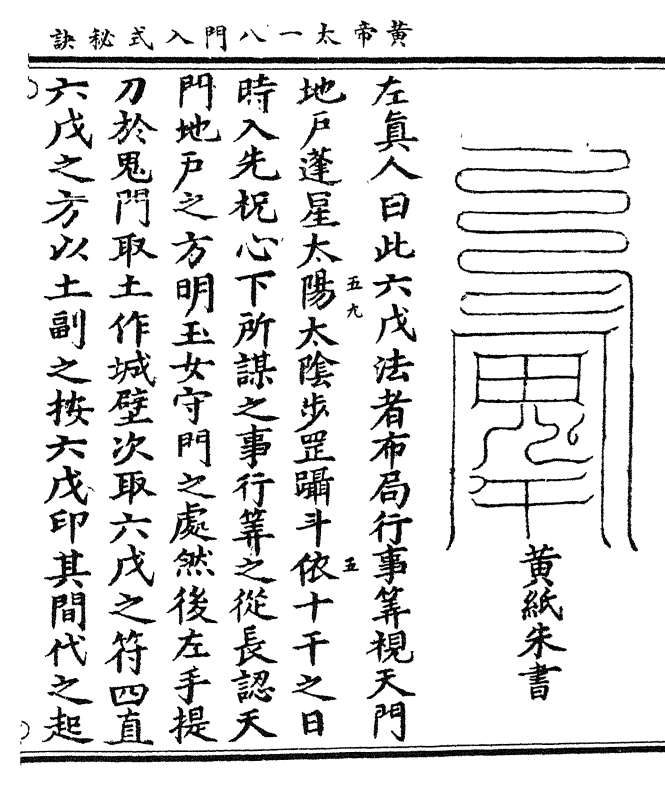 黃帝太一八門入式秘訣
黃紙朱書
左眞人曰此六戊法者布局行事筭視天門
地戶蓬星太陽太陰步罡躡斗依十干之日
五九
五
時入先柷心下所謀之事行筭之從長認天
門地戶之方明玉女守門之處然後左手提
刀於鬼門取土作城壁次取六戊之符四直
六戊之方以土副之按六戊印其間代之起